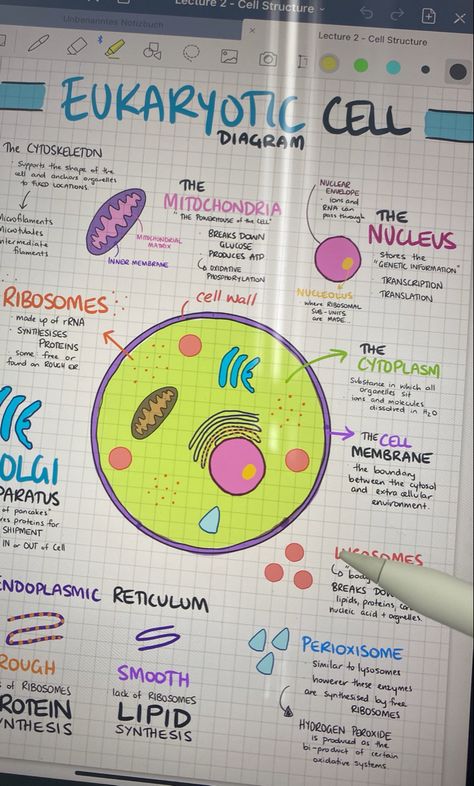 Lecture 2 - Cell Structure
Unbenanntes Notizbuch
Lecture 2 - Cell Structure
EUKARYOTIC CELL
DIAGRAM
The CYTOSKELETON
· Supports the shape of the
cell and anchors organelles
to FIXED LOCATIONS.
Microfilaments
Microtubules
Intermediate
filaments
THE
MITOCHONDRIA
"THE POWERHOUSE of the CELL"
· BREAKS DOWN
GLUCOSE
· PRODUCES ATP
OXIDATIVE
PHOSPHORYLATION
MITOCHONDRIAL
MATRIX
INNER MEMBRANE
NUCLEAR
ENVELOPE
· ions and
RNA can
pass through
THE
NUCLEUS
Stores the
"GENETIC INFORMATION"
TRANSCRIPTION
TRANSLATION
NUCLEOLUS
where RIBOSOMAL
SUB-UNITS
are MADE
RIBOSOMES
made up of rRNA
· SYNTHESISES
PROTEINS
some free or
found on ROUGH ER
cell wall
THE
CYTOPLASM
Substance in which all
organelles sit
ions and molecules
dissolved in H₂O
THE CELL
MEMBRANE
the boundary
between the cytosol
and extra cellular
environment.
OLGI
PARATUS
of pancakes"
res proteins for
SHIPMENT
IN or OUT of Cell
LYSOSOMES
BREAKS
lipids, proteins,
nucleic acid + organelles.
ENDOPLASMIC RETICULUM
ROUGH
of RIBOSOMES
ROTEIN
YNTHESIS
SMOOTH
lack of RIBOSOMES
LIPID
SYNTHESIS
PERIOXISOME
· Similar to lysosomes
however these enzymes
are synthesised by free
RIBOSOMES
HYDROGEN PEROXIDE
is produced as the
bi-product of certain
oxidative systems.